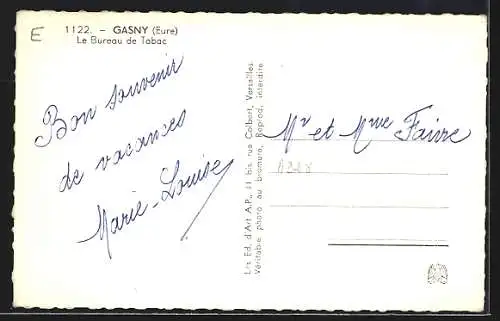 E
1122. – GASNY (Eure)
Le Bureau de Tabac
Bon souvenir
de vacances
Marie-Louise
Les Ed. d'Art A.P., 11 bis rue Colbert, Versailles
Véritable photo au bromure. Reprod. interdite
Mr et Mme Faivre